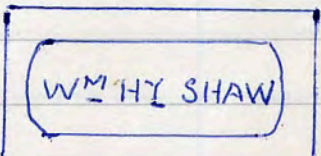 Wᴹ Hʸ SHAW